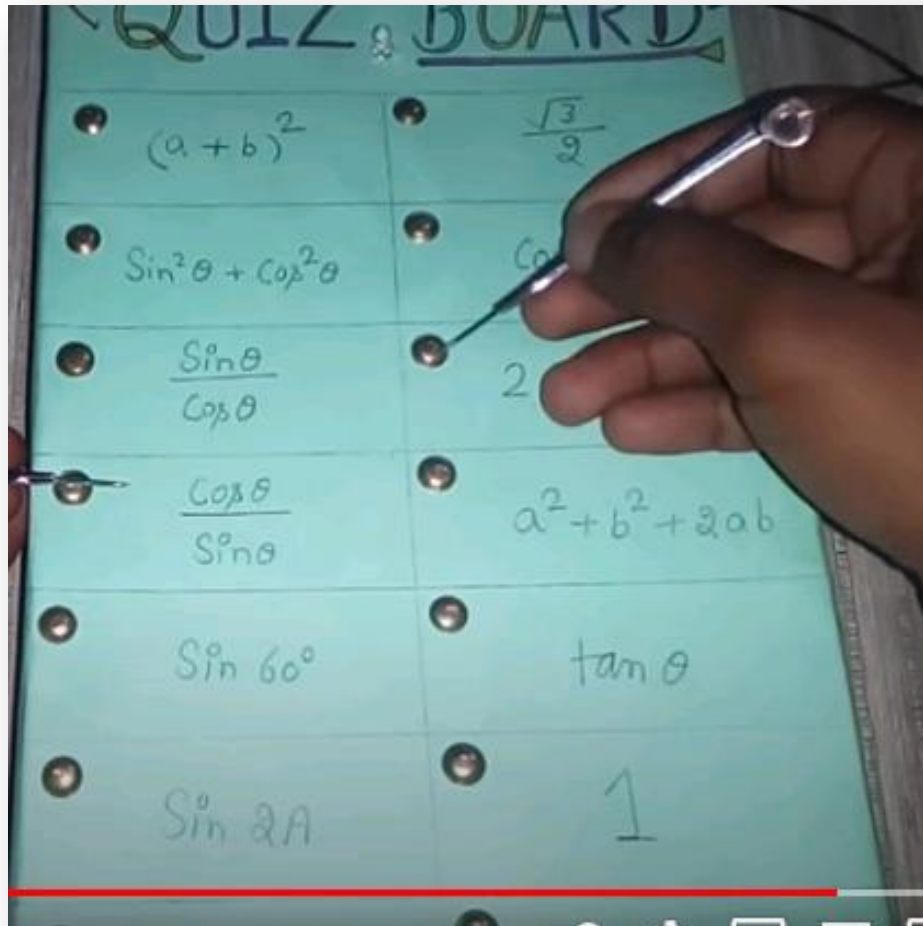 QUIZ BOARD
(a + b)²
√3/2
Sin²θ + Cos²θ
Sinθ/Cosθ
2
Cosθ/Sinθ
a² + b² + 2ab
Sin 60°
tan θ
Sin 2A
1